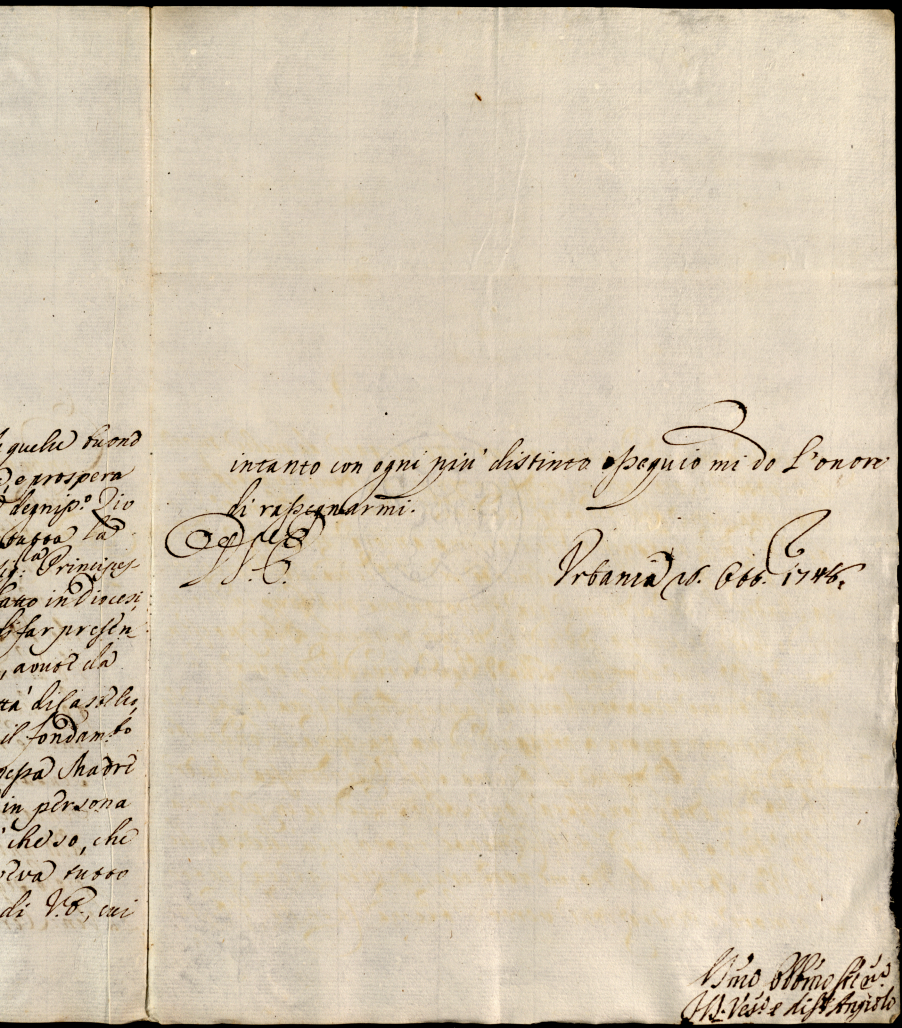 quelle buone
e prospera
degniss.º Dio
tutta la
Principes
fatto in Diocesi,
far presen
, avute da
ttà di Castello,
il fondam.to
Madre
in persona
che so, che
tutto
di V.E., cui
intanto con ogni più distinto ossequio mi do l'onore
di rassegnarmi.
V.E.
Urbania 16. Ott. 1746.
Obbmo
Vesc.º e di S. Angiolo